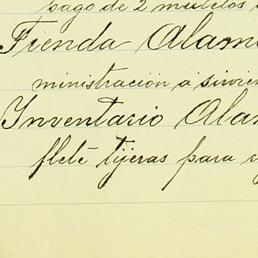 pago de 2 muletos
Tienda Alam
ministración a sirvie
Inventario Ala
flete tijeras para